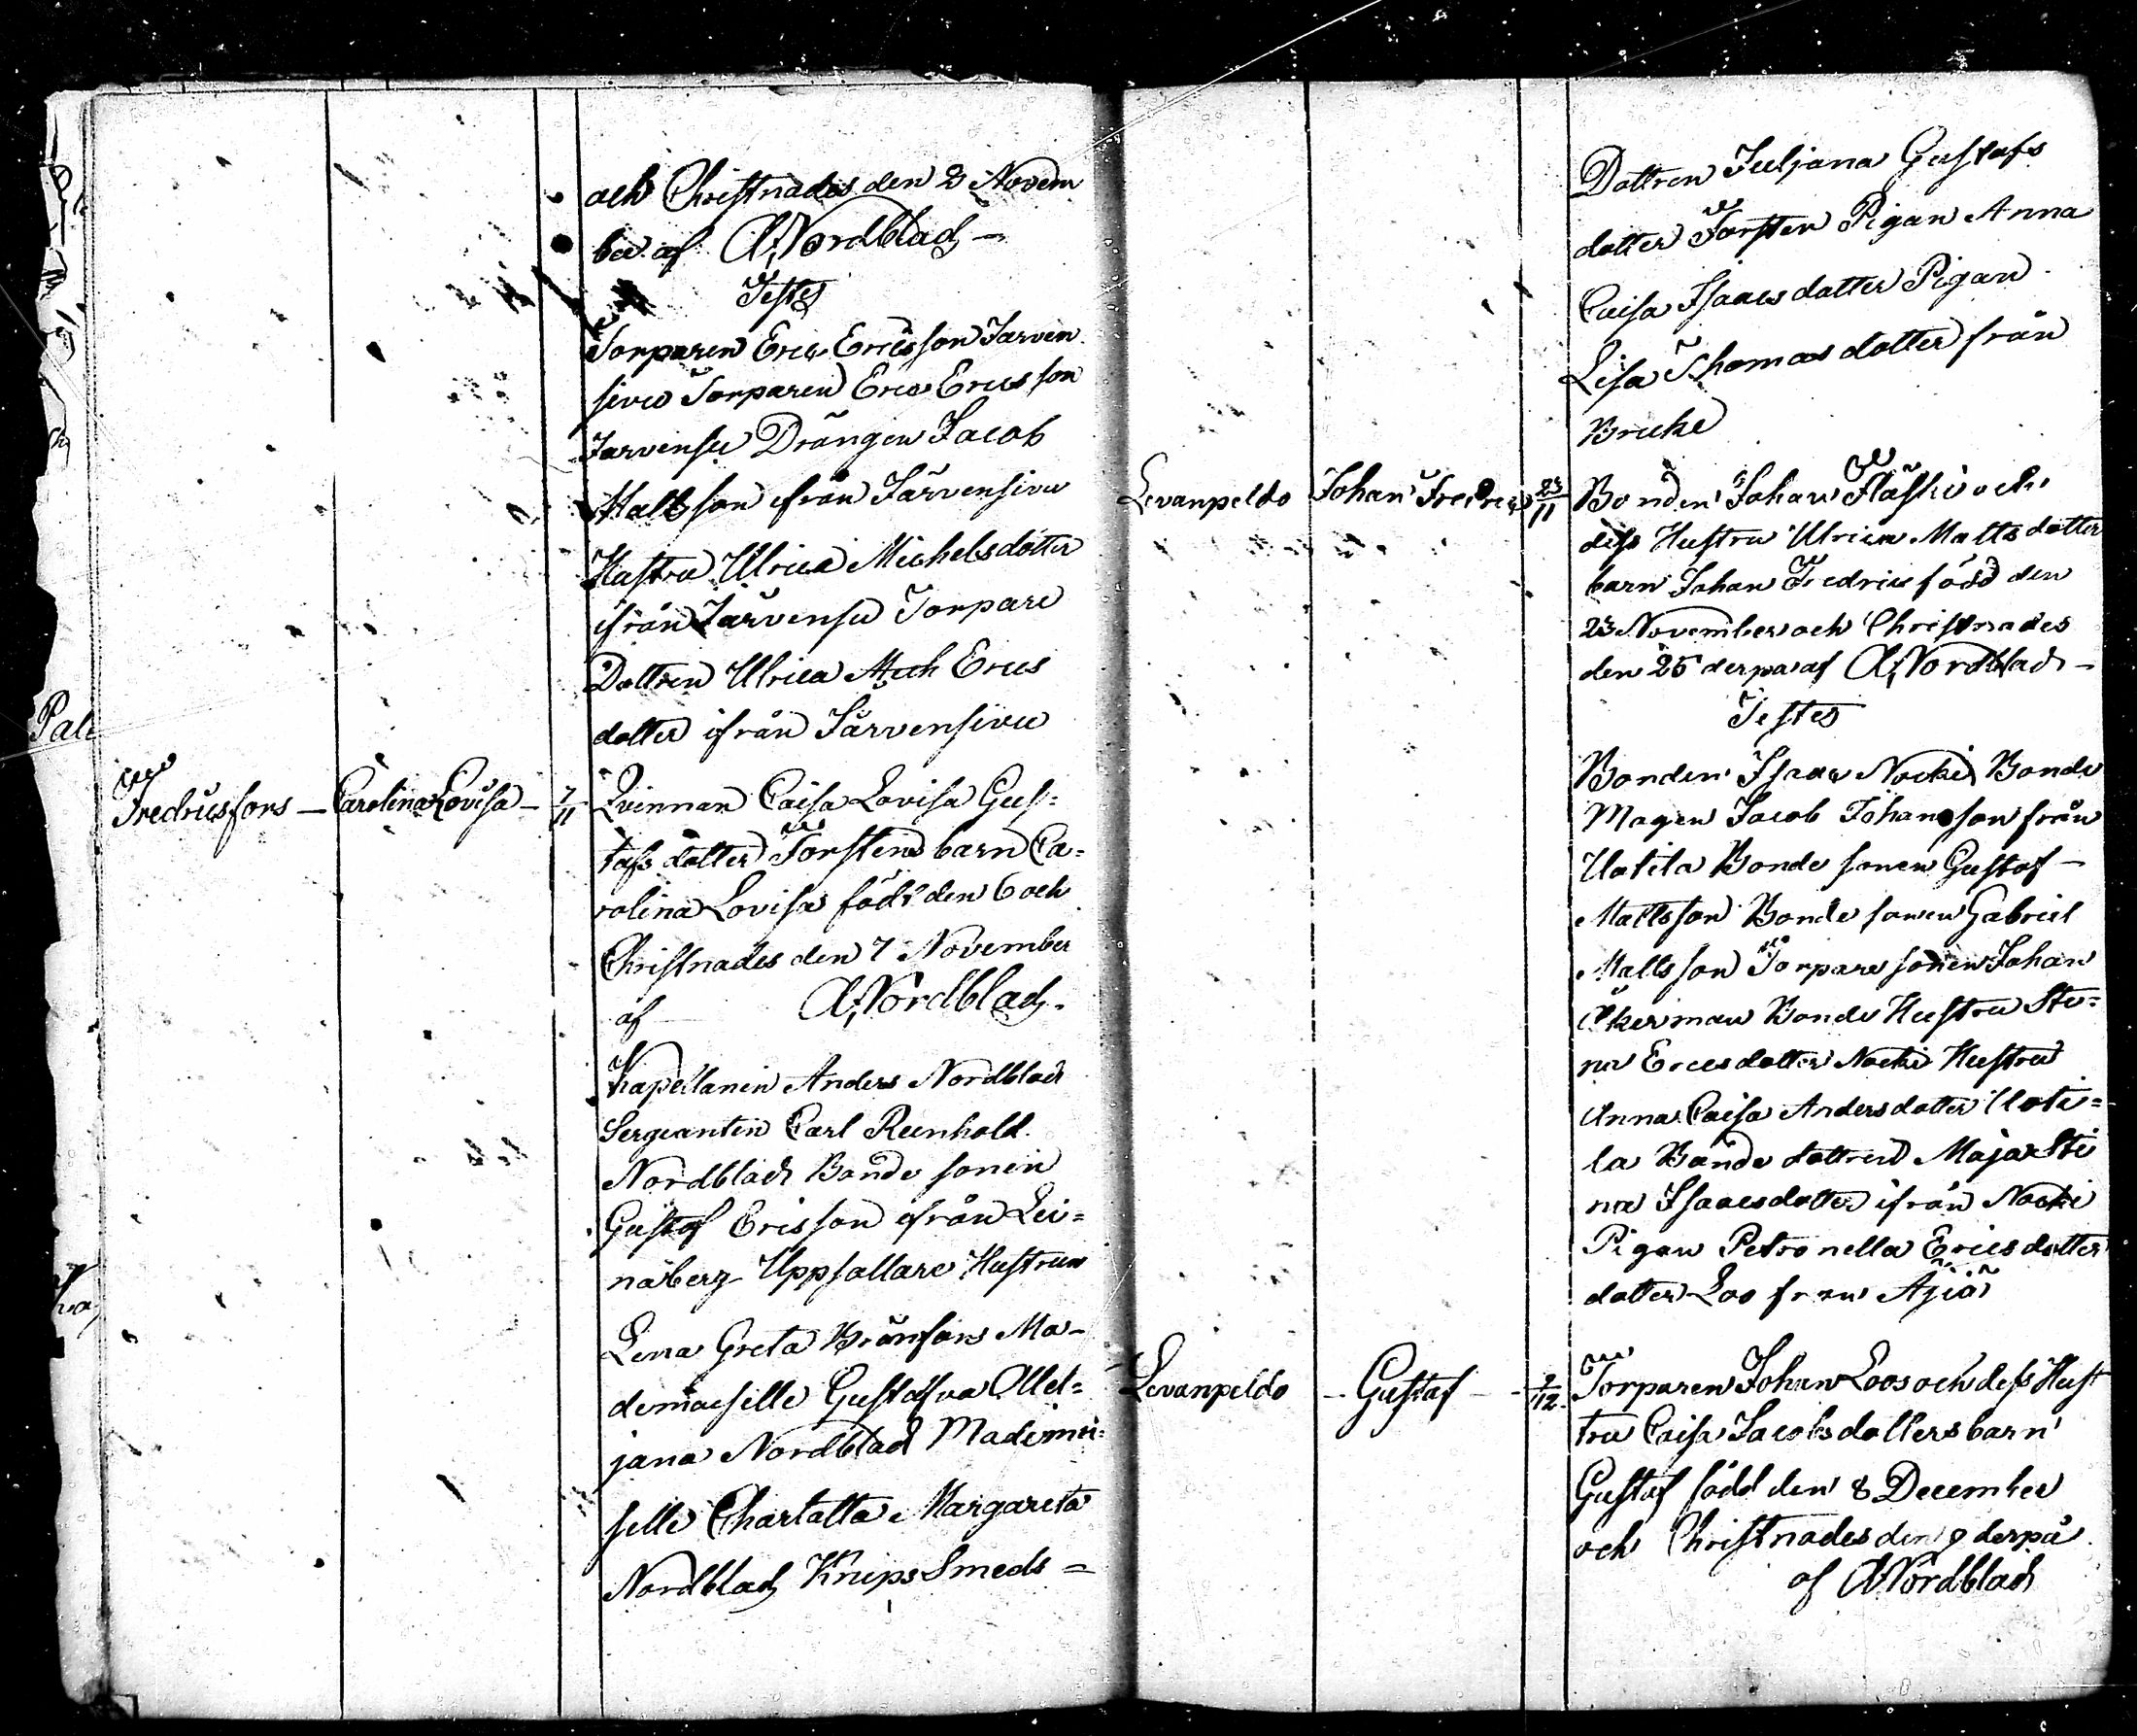 och Christnades den 2 Novem
ber af A, Nordblad,
Testes
Torparen Eric Ericsson Jarven
sivu Torparen Eric Ericsson
Jarvensu Drängen Jacob
Mattsson ifrån Järvensivu
Hustru Ulrica Michelsdotter
ifrån Järvensu Torpare
Dottren Ulrica Erics
dotter ifrån Järvensivu
Fredricsfors — Carolina Lovisa — 7/11 Qvinnan Caisa Lovisa Gus=
tafs dotter Forstens barn Ca=
rolina Lovisa född den 6 och
Christnades den 7 November
af A, Nordblad,
Kapellanen Anders Nordblad
Sergeanten Carl Reinhold
Nordblad Bonde sonen
Gustaf Ericsson ifrån Lei=
näberg Uppsallare Hustrun
Lena Greta Brånfors Ma-
demoiselle Gustafva Adel=
jana Nordblad Mademoi=
selle Charlotta Margareta
Nordblad, Knips Smeds =
Dottren Juljana Gustafs
dotter Forsten Pigan Anna
Caisa Isaacs dotter Pigan
Lisa Thomas dotter från
Bruke
Levanpeldo Johan Fredric 23/11 Bonden Johan Fläski och
dess Hustru Ulrica Matts dotter
barn Johan Fredric född den
23 November och Christnades
den 25 derpå af A, Nordblad -
Testes
Bonden Isaac Nocki Bonde
Magen Jacob Johansson från
Uotila Bonde sonen Gustaf -
Mattsson Bonde sonen Gabriel
Mattsson Torpare sonen Johan
Åkerman Bonde Hustru Sti=
na Ericsdotter Nocki Hustru
Anna Caisa Andersdotter Uoti=
la Bonde dottren Maja Sti
na Isaacsdotter ifrån Nocki
Pigan Petronella Ericsdotter
dotter Loo från Äjiä
Levanpeldo - Gustaf - 9/12 Torparen Johan Loos och dess Hust
tru Caisa Jacobsdotters barn
Gustaf född den 8 December
och Christnades den 9 derpå
af A, Nordblad